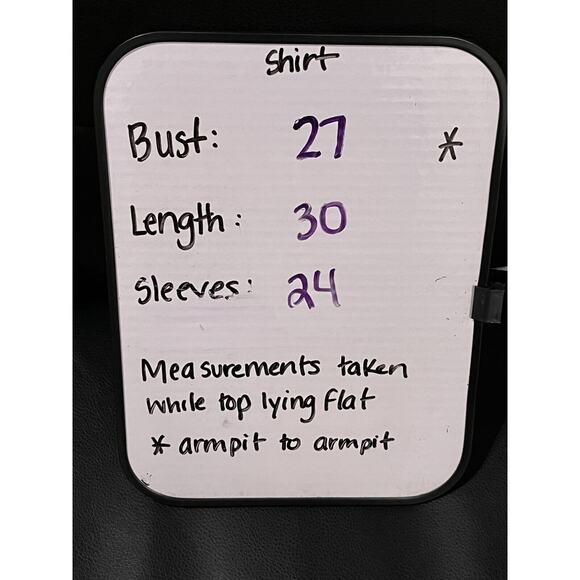 Shirt
Bust: 27 *
Length: 30
Sleeves: 24
Measurements taken
while top lying flat
* armpit to armpit